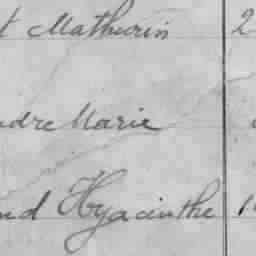 t Mathurin 2
ndre Marie
nd Hyacinthe 1